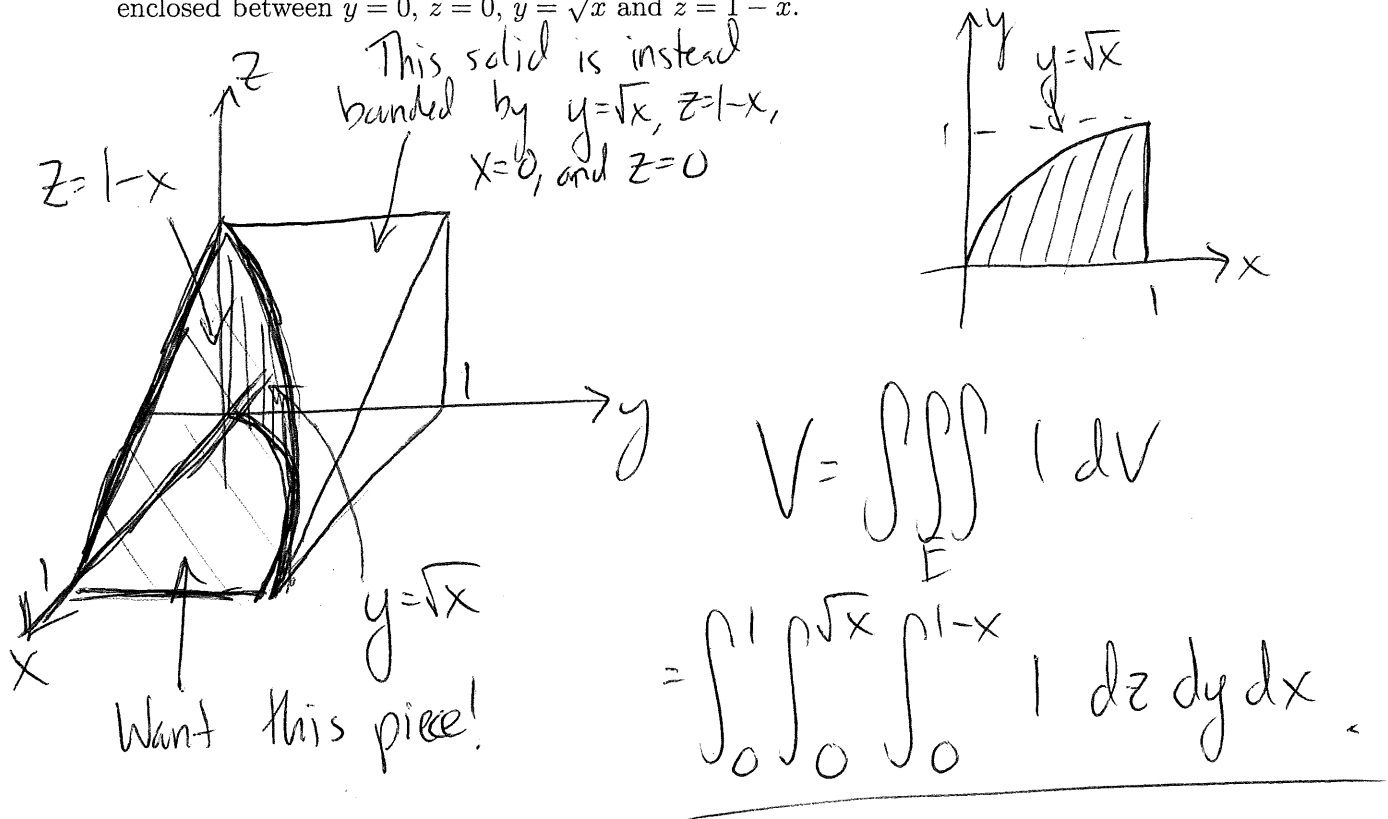 enclosed between y = 0, z = 0, y = √x and z = 1 − x.
This solid is instead
bounded by y=√x, z=1-x,
x=0, and z=0
z
z=1-x
1
y
y=√x
1
x
Want this piece!
y
y=√x
1
x
1
V = ∭ 1 dV
E
= ∫₀¹ ∫₀^√x ∫₀^1-x 1 dz dy dx .